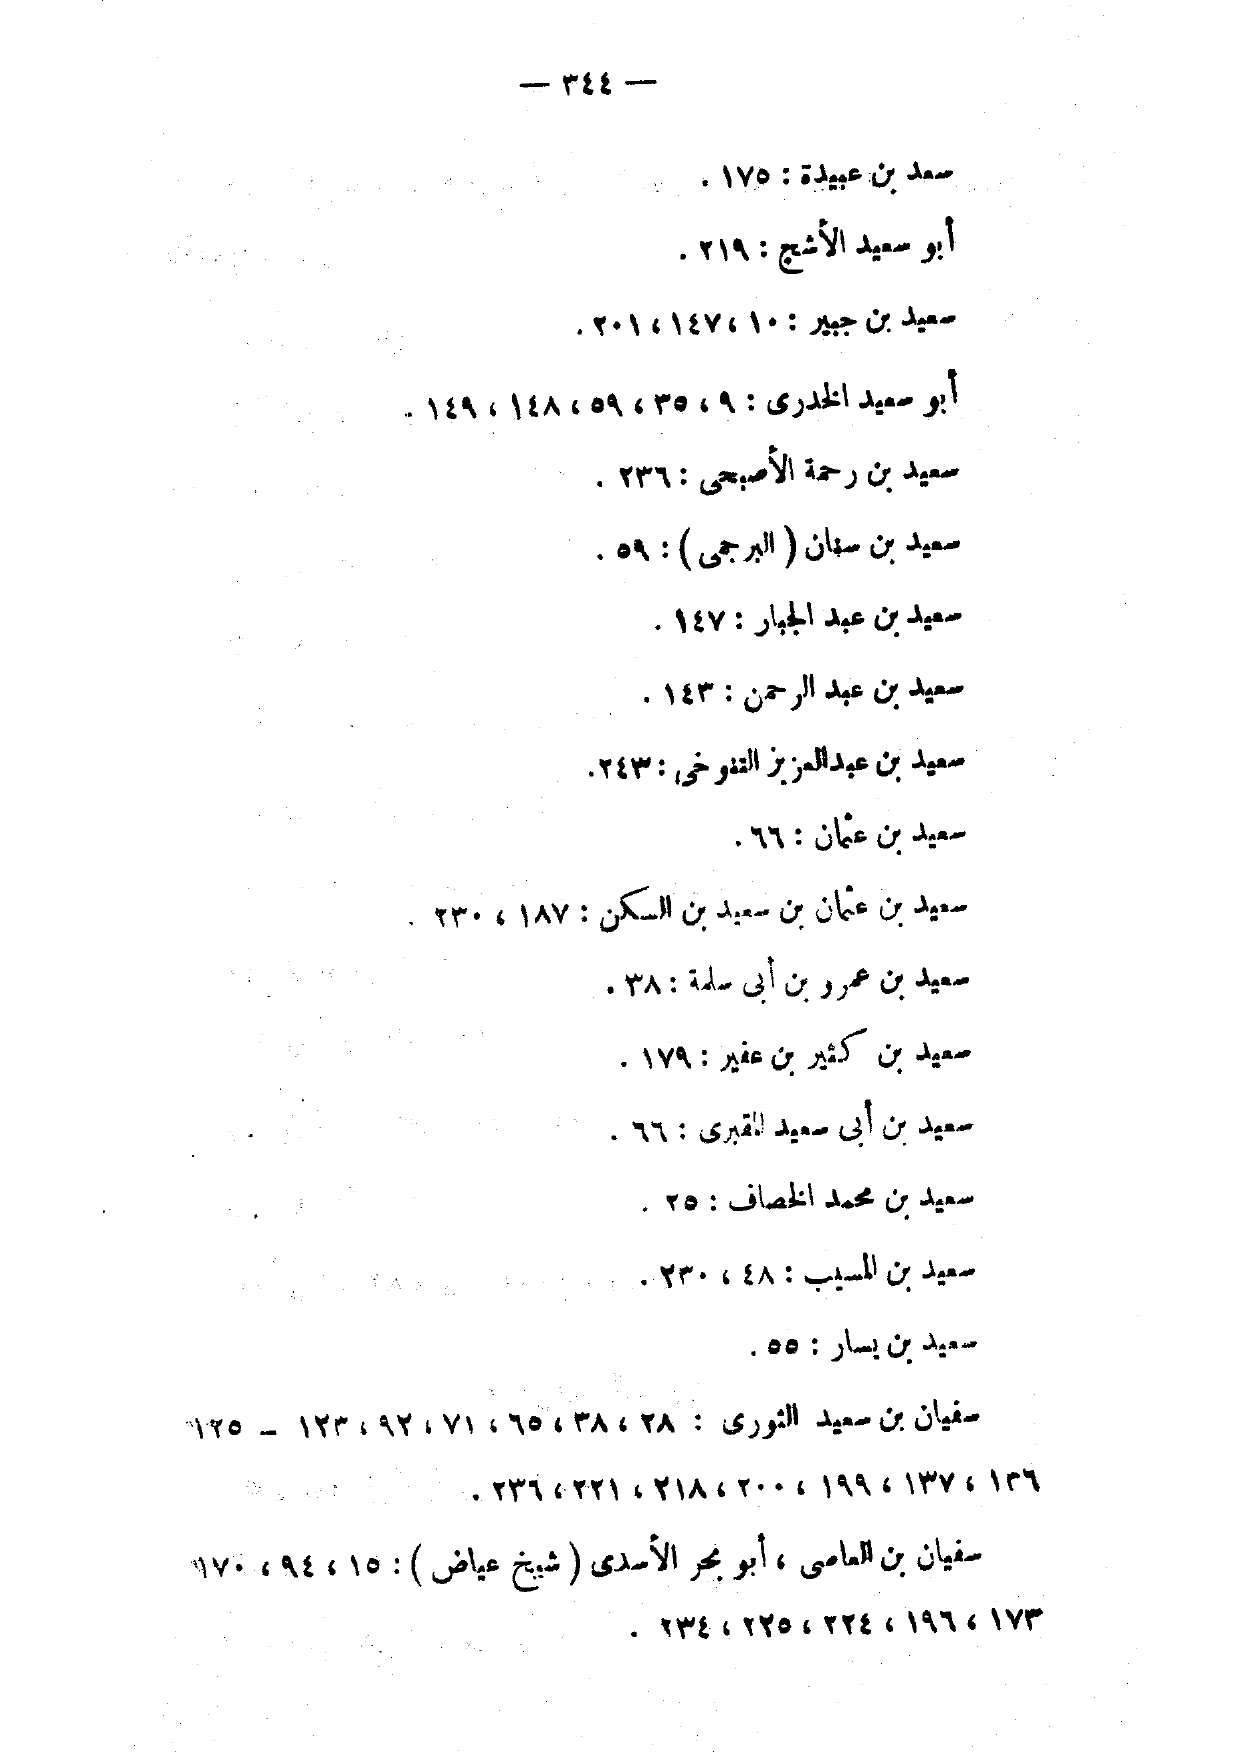 — ٣٤٤ —
سعد بن عبيدة : ١٧٥ .
أبو سعيد الأشج : ٢١٩ .
سعيد بن جبير : ١٠ ، ١٤٧ ، ٢٠١ .
أبو سعيد الخدرى : ٩ ، ٣٥ ، ٥٩ ، ١٤٨ ، ١٤٩ .
سعيد بن رحمة الأصبحى : ٢٣٦ .
سعيد بن سنان ( البرجمى ) : ٥٩ .
سعيد بن عبد الجبار : ١٤٧ .
سعيد بن عبد الرحمن : ١٤٣ .
سعيد بن عبدالعزيز التنوخى : ٢٤٣.
سعيد بن عثمان : ٦٦ .
سعيد بن عثمان بن سعيد بن السكن : ١٨٧ ، ٢٣٠ .
سعيد بن عمرو بن أبى سلمة : ٣٨ .
سعيد بن كثير بن عفير : ١٧٩ .
سعيد بن أبى سعيد المقبرى : ٦٦ .
سعيد بن محمد الخصاف : ٢٥ .
سعيد بن المسيب : ٤٨ ، ٢٣٠ .
سعيد بن يسار : ٥٥ .
سفيان بن سعيد الثورى : ٢٨ ، ٣٨ ، ٦٥ ، ٧١ ، ٩٢ ، ١٢٣ – ١٢٥
١٣٦ ، ١٣٧ ، ١٩٩ ، ٢٠٠ ، ٢١٨ ، ٢٢١ ، ٢٣٦ .
سفيان بن العاصى ، أبو بحر الأسدى ( شيخ عياض ) : ١٥ ، ٩٤ ، ١٧٠
١٧٣ ، ١٩٦ ، ٢٢٤ ، ٢٢٥ ، ٢٣٤ .